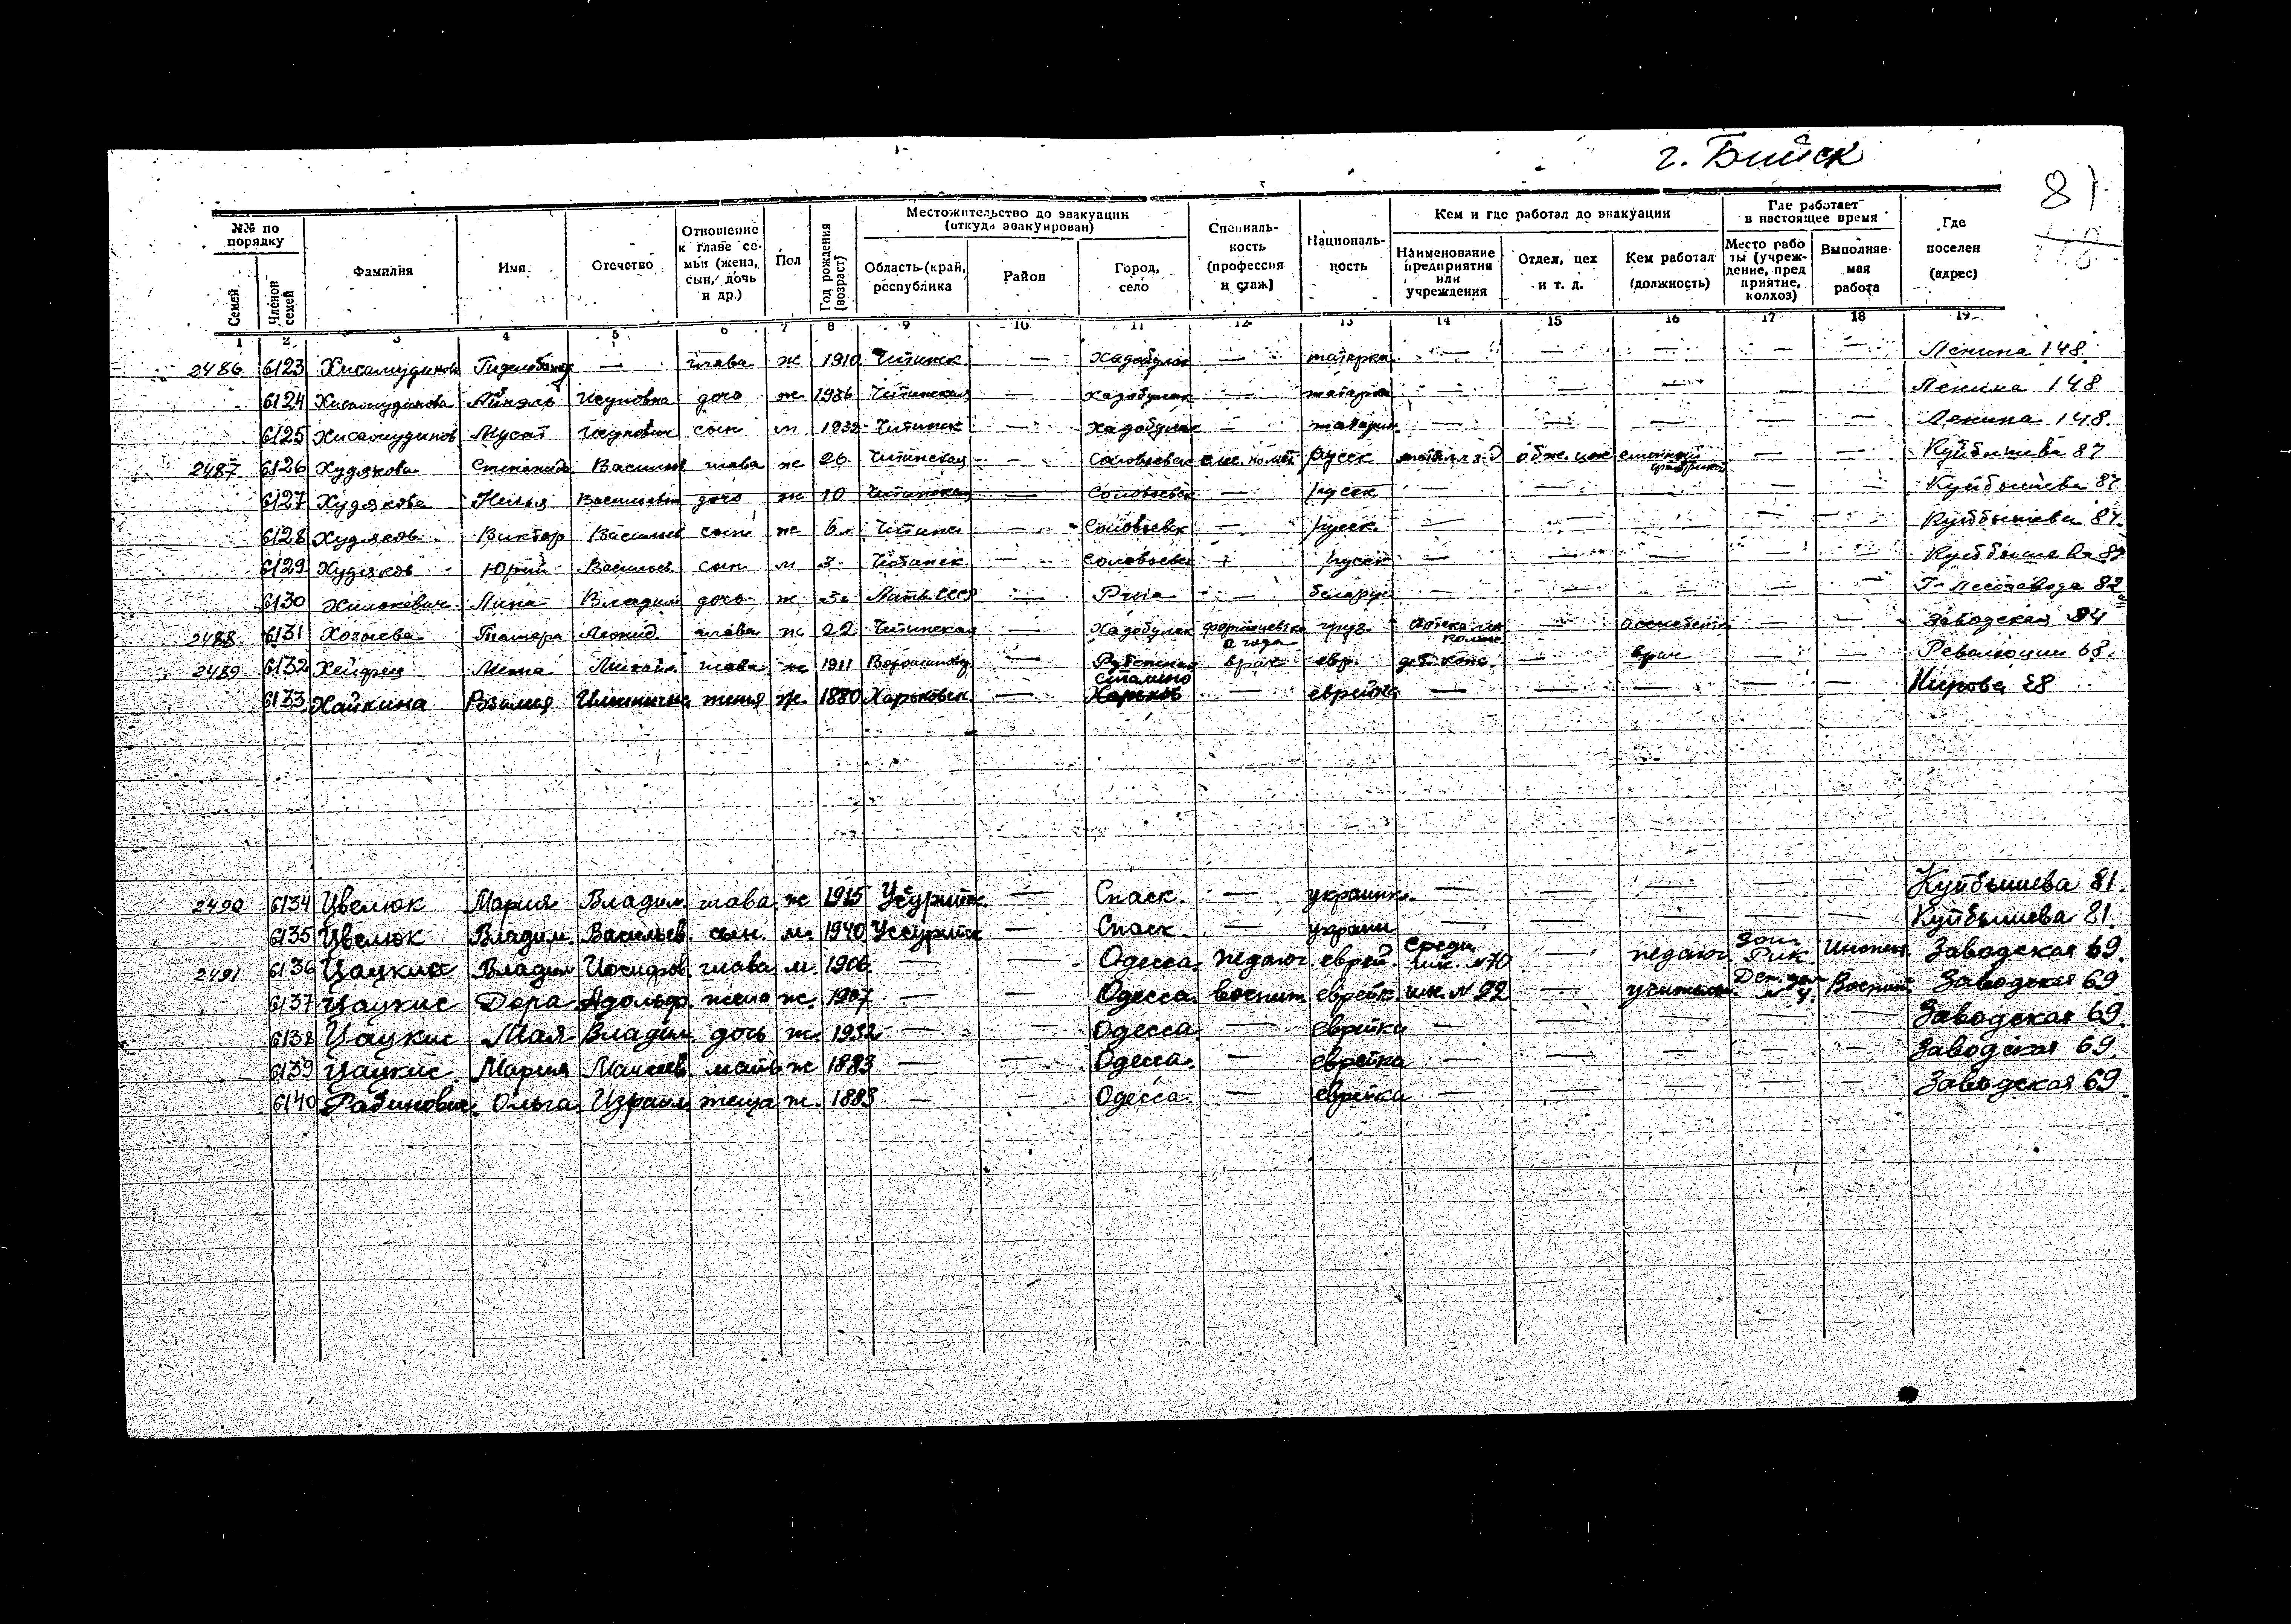 г. Бийск
81
№№ по порядку
Семей
Членов семей
Фамилия
Имя
Отчество
Отношение к главе семьи (жена, сын, дочь и др.)
Пол
Год рождения (возраст)
Местожительство до эвакуации (откуда эвакуирован)
Область (край, республика
Район
Город, село
Специальность (профессия и стаж)
Националь-ность
Кем и где работал до эвакуации
Наименование предприятия или учреждения
Отдел, цех и т. д.
Кем работал (должность)
Где работает в настоящее время
Место рабо ты (учреж-дение, пред приятие, колхоз)
Выполняе-мая работа
Где поселен (адрес)
1 2 3 4 5 6 7 8 9 10 11 12 13 14 15 16 17 18 19
2486 6123 — глава ж 1910 Читинск — — татарка — — — — — Ленина 148
6124 дочь ж Читинская — татарка — — — — — Ленина 148
6125 Хисамудинов сын м 1932 Читинск — — татарин — — — — — Ленина 148.
2487 6126 Худякова Степанида Васильев глава ж 26 Читинская — Соловьевск русск — — Куйбышева 87
6127 Худякова Васильевн дочь ж 10 Читинская — Соловьевск — русск — — — — — Куйбышева 87
6128 Худяков Виктор Васильев сын ж 6 Читинск — Соловьевск — русск — — — — — Куйбышева 87.
6129 Худяков Юрий Васильев сын м 3 Читинск — Соловьевск — русск — — — — — Куйбышева 87
6130 Лина Владим дочь ж Латв. ССР — Рига — белорус — — — — — Лесозавода 82
2488 6131 Хозиева Тамара Леонид. глава ж 22 Читинская 2 года груз. Аптека — ассистент — — Заводская 84
2489 6132 Хейфец Михайл глава ж 1911 Ворошиловг — врач евр. — врач — — Революции 68.
6133 Хайкина Розалия Ильинична жена ж. 1880 Харьковск. — Харьков — еврейка — — — — — Кирова 28
2490 6134 Цвелюк Мария Владим. глава ж 1915 — Спаск. — украинк. — — — — — Куйбышева 81.
6135 Цвелюк Владим. Васильев. сын. м. 1940 — Спаск — украин — — — — — Куйбышева 81.
2491 6136 Цацкис Владим Иосифов. глава м. 1906 — — Одесса. педагог еврей. Средн. шк. №70 — педагог РИК Инспек. Заводская 69.
6137 Цацкис Дора Адольф. жена ж. 1907 — — Одесса. воспит. еврейк. шк. №92 — учительн. Дет. дом №4. Воспит. Заводская 69
6138 Цацкис Мая Владим. дочь ж. 1932 — — Одесса — еврейка — — — — — Заводская 69.
6139 Цацкис Мария мать ж 1883 — — Одесса. — еврейка — — — — — Заводская 69.
6140 Рабинович Ольга Израил. теща ж. 1883 — — Одесса. — еврейка — — — — — Заводская 69.